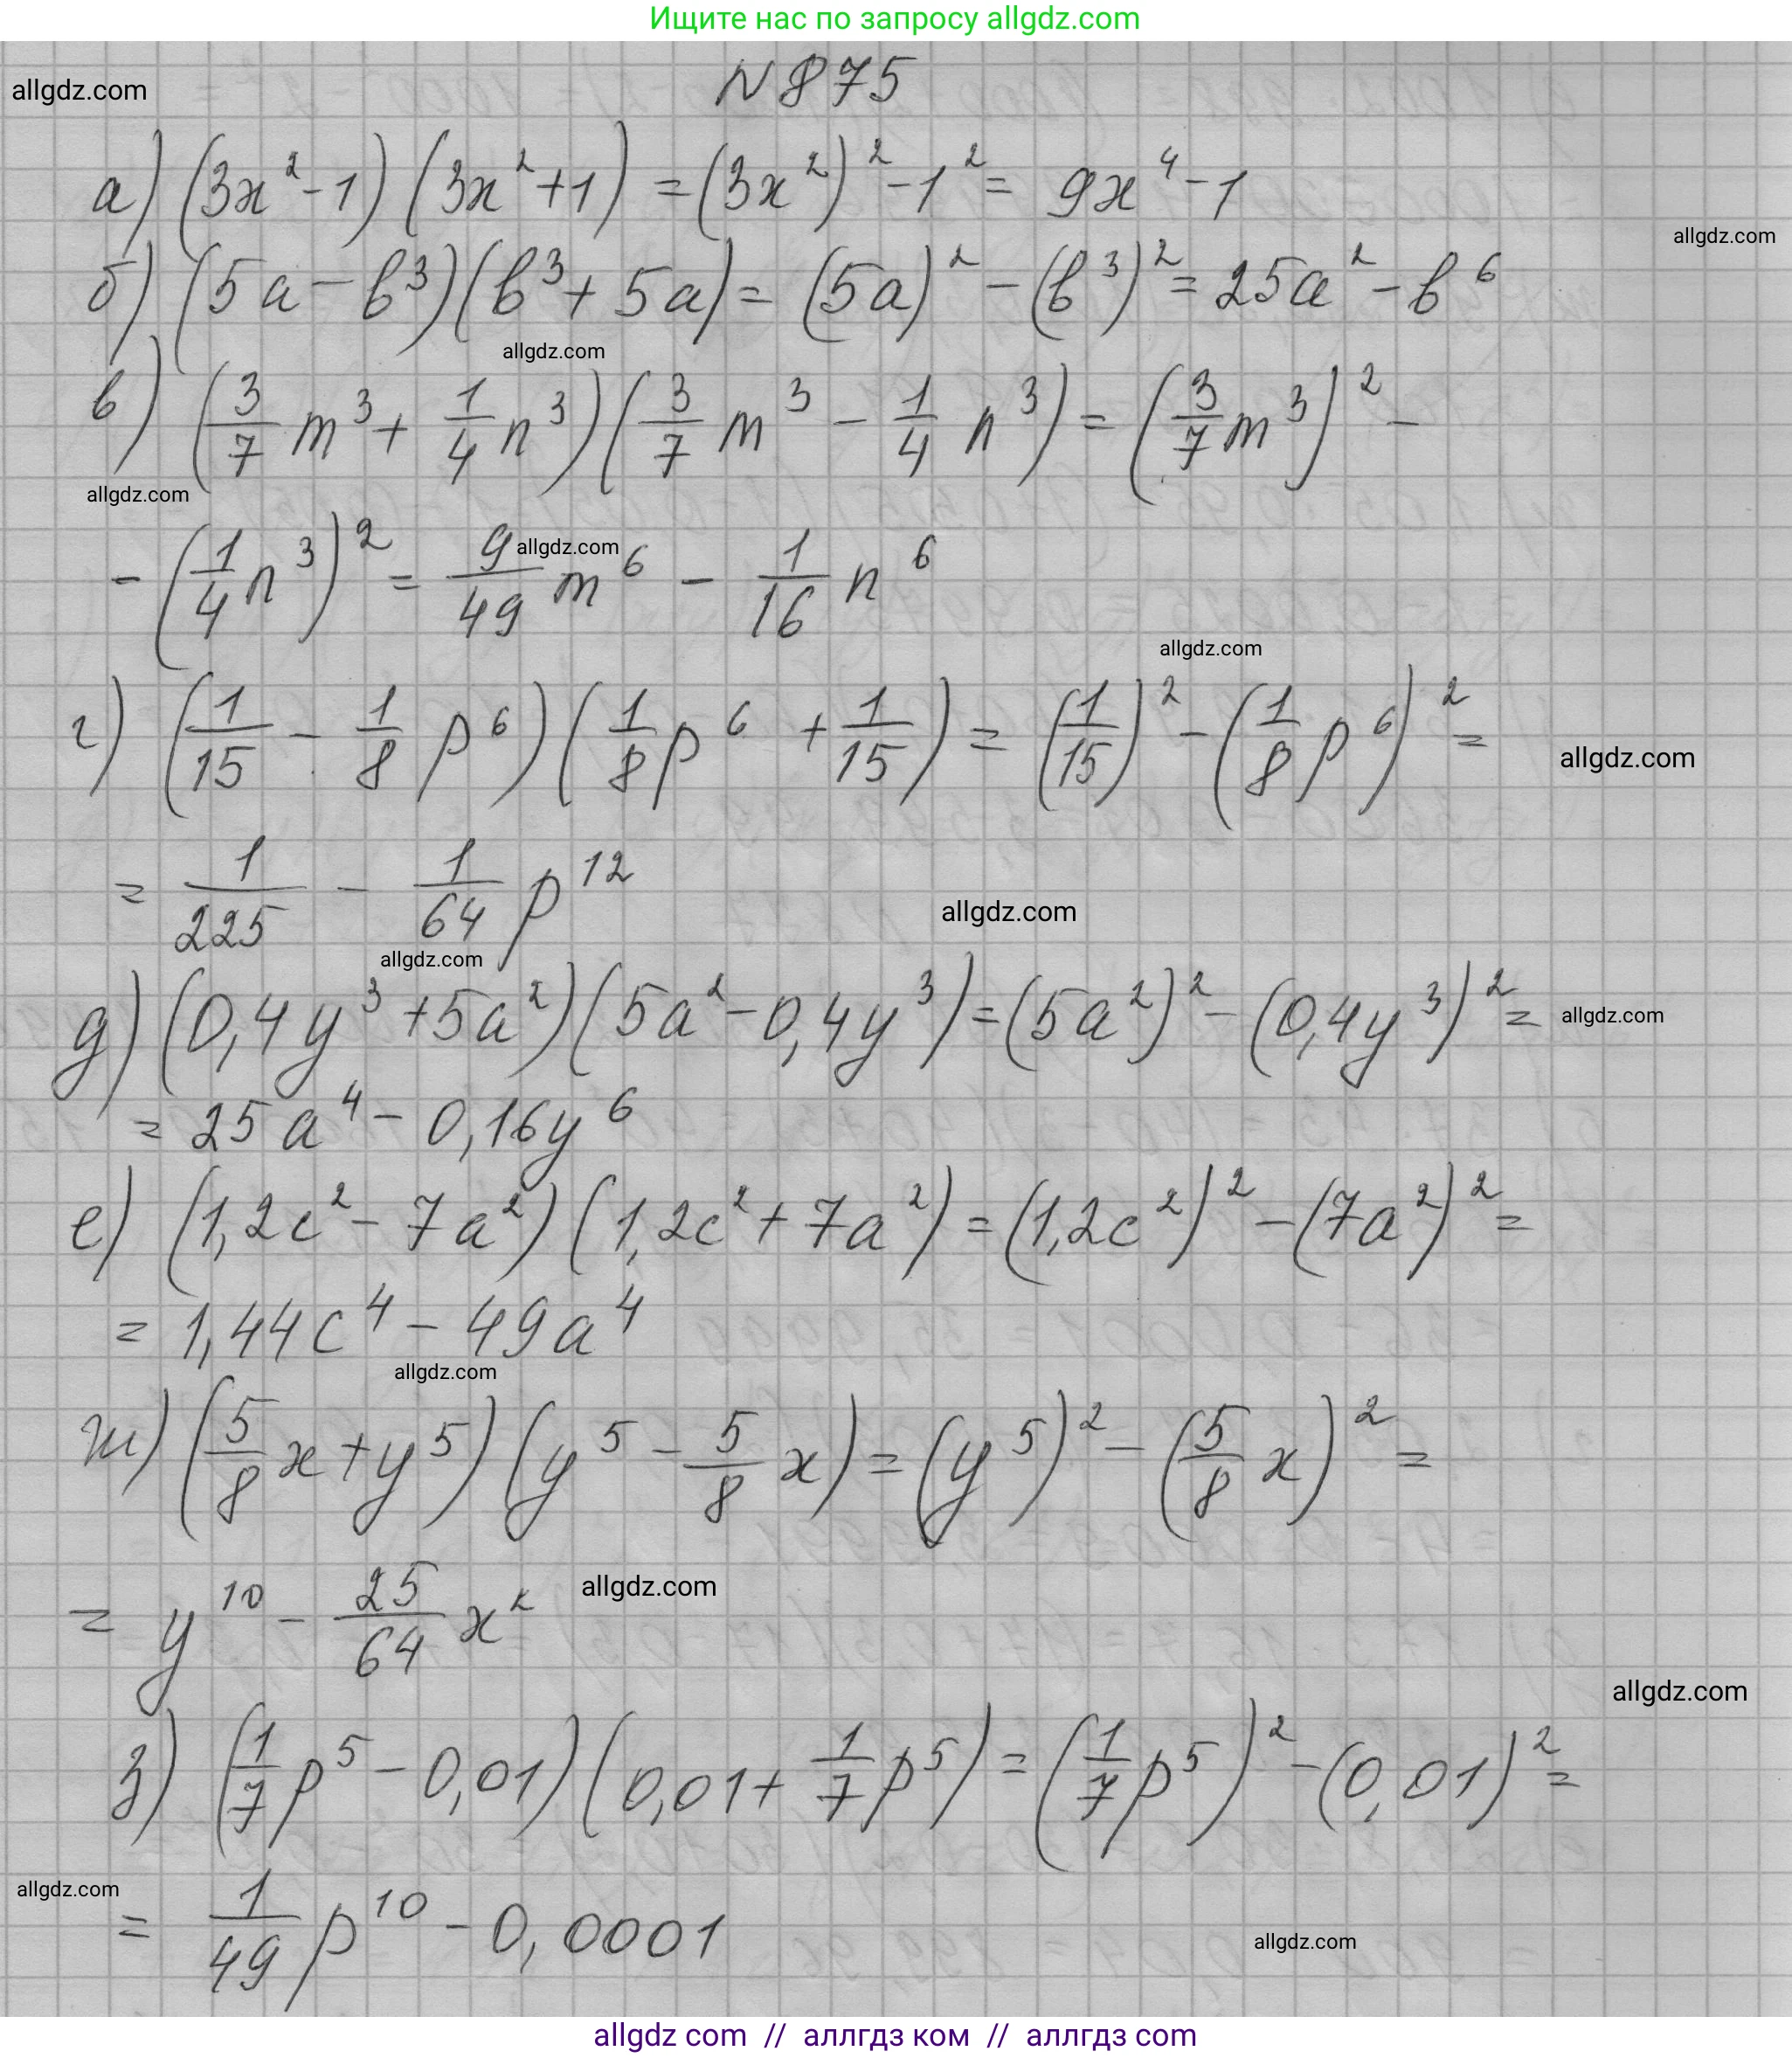 Ищите нас по запросу allgdz.com
allgdz.com
N 875
а) (3x² - 1) (3x² + 1) = (3x²)² - 1² = 9x⁴ - 1
allgdz.com
б) (5a - b³)(b³ + 5a) = (5a)² - (b³)² = 25a² - b⁶
allgdz.com
в) (3/7 m³ + 1/4 n³)(3/7 m³ - 1/4 n³) = (3/7 m³)² -
allgdz.com
- (1/4 n³)² = 9/49 m⁶ - 1/16 n⁶
allgdz.com
allgdz.com
г) (1/15 - 1/8 p⁶)(1/8 p⁶ + 1/15) = (1/15)² - (1/8 p⁶)² =
allgdz.com
= 1/225 - 1/64 p¹²
allgdz.com
allgdz.com
д) (0,4y³ + 5a²)(5a² - 0,4y³) = (5a²)² - (0,4y³)² =
allgdz.com
= 25a⁴ - 0,16y⁶
е) (1,2c² - 7a²)(1,2c² + 7a²) = (1,2c²)² - (7a²)² =
= 1,44c⁴ - 49a⁴
allgdz.com
ж) (5/8 x + y⁵)(y⁵ - 5/8 x) = (y⁵)² - (5/8 x)² =
= y¹⁰ - 25/64 x²
allgdz.com
allgdz.com
з) (1/7 p⁵ - 0,01)(0,01 + 1/7 p⁵) = (1/7 p⁵)² - (0,01)² =
allgdz.com
= 1/49 p¹⁰ - 0,0001
allgdz.com
allgdz com // аллгдз ком // аллгдз com